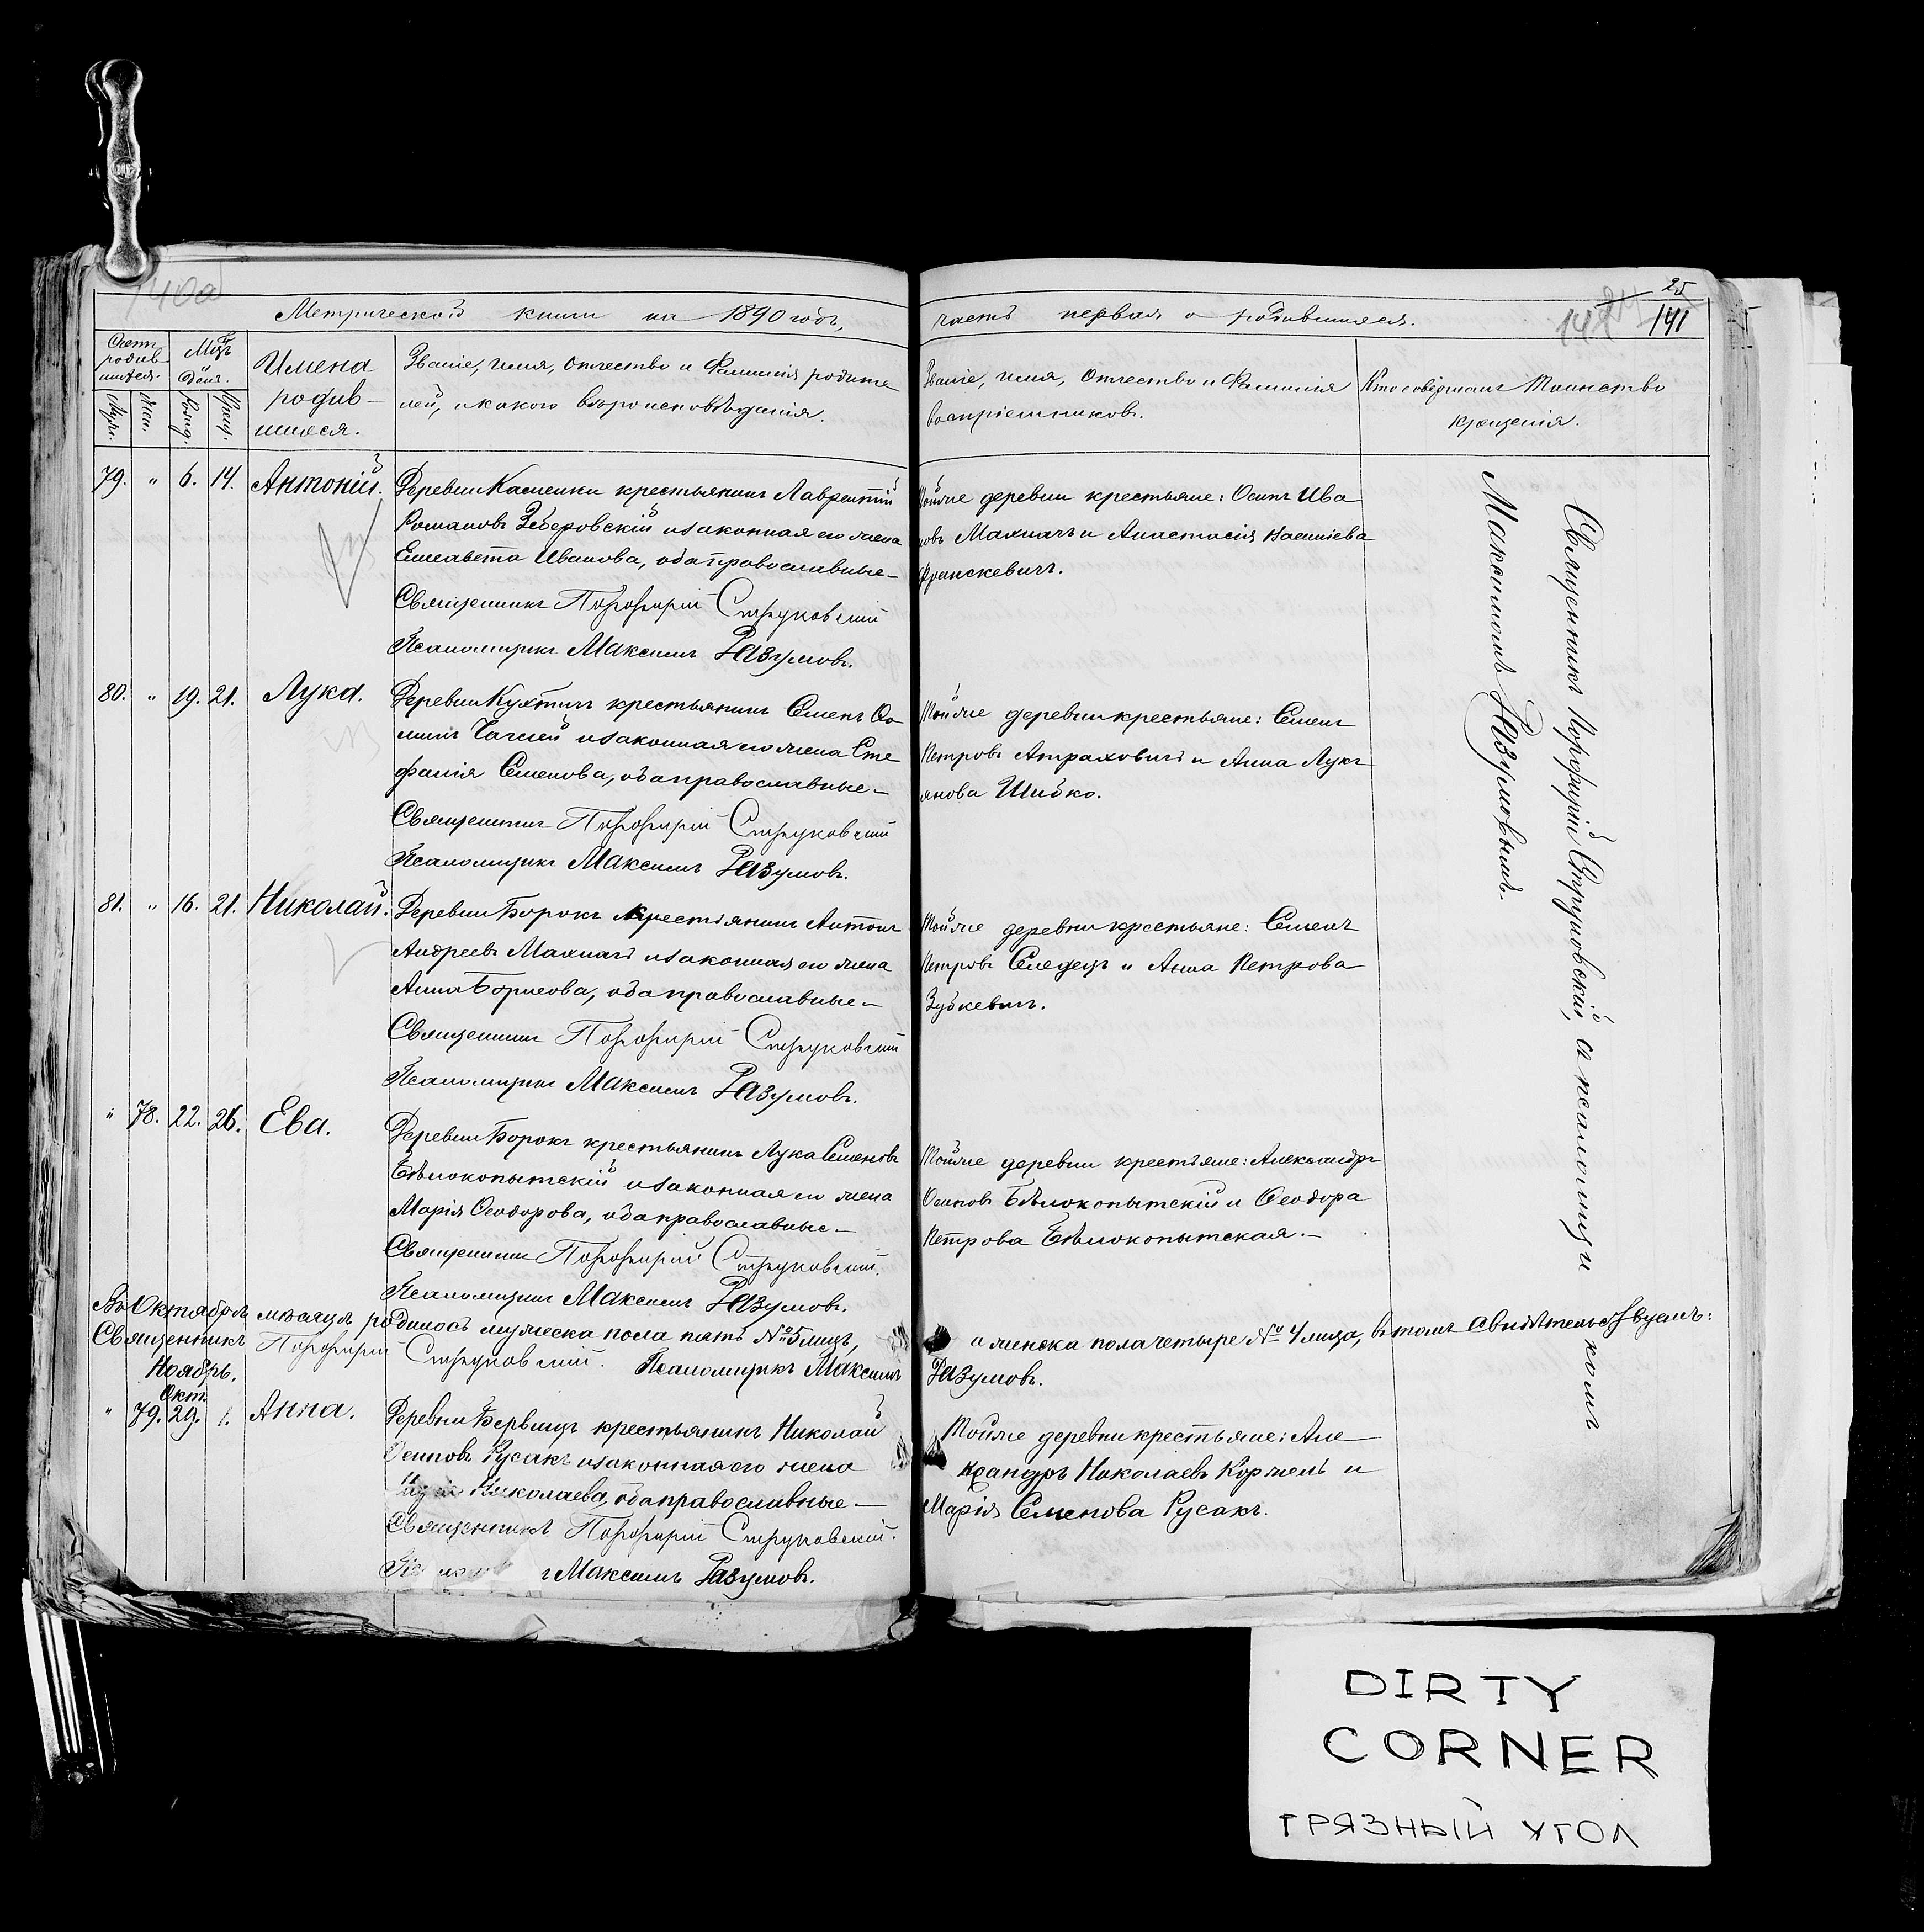 140а
Метрической книги на 1890 годъ,
Счетъ родив-
шихся.
Муж.
Жен.
Мѣц. и день.
Рожд.
Крещ.
Имена
родив-
шихся.
Званіе, имя, отчество и фамилія родите
лей, и какого вѣроисповѣданія.
79. " 6. 14. Антоній.
Деревни Каменки крестьянинъ Лаврентій
Романовъ и законная его жена
Елисавета Иванова, оба православные —
Священникъ Порфирій Струковскій
Псаломщикъ Максимъ Разумовъ.
80. " 19. 21. Лука.
Деревни Кухтичъ крестьянинъ Семенъ Ѳо
минъ и законная его жена Сте
фанія Семенова, оба православные —
Священникъ Порфирій Струковскій
Псаломщикъ Максимъ Разумовъ.
81. " 16. 21. Николай.
Деревни Борокъ крестьянинъ Антонъ
Андреевъ Махначъ и законная его жена
Анна Борисова, оба православные —
Священникъ Порфирій Струковскій
Псаломщикъ Максимъ Разумовъ.
" 78. 22. 26. Ева.
Деревни Борокъ крестьянинъ Лука Семеновъ
Бѣлокопытскій и законная его жена
Марія Ѳеодорова, оба православные —
Священникъ Порфирій Струковскій.
Псаломщикъ Максимъ Разумовъ.
Въ Октябрѣ мѣсяцѣ родилось мужеска пола пять № 5 лицъ,
Священникъ Порфирій Струковскій. Псаломщикъ Максимъ
Ноябрь.
Окт.
" 79. 29. 1. Анна.
Деревни крестьянинъ Николай
Осиповъ Русакъ и законная его жена
Николаева, оба православные —
Священникъ Порфирій Струковскій.
Максимъ Разумовъ.
часть первая о родившихся.
25
141
Званіе, имя, отчество и фамилія
воспріемниковъ.
Кто совершалъ Таинство
крещенія.
Тойже деревни крестьяне: Осипъ Ива
новъ Махначъ и Анастасія Василіева
Францкевичъ.
Тойже деревни крестьяне: Семенъ
Петровъ Атраховичъ и Анна Лукь
янова Шибко.
Тойже деревни крестьяне: Семенъ
Петровъ Селедецъ и Анна Петрова
Зубкевичъ.
Тойже деревни крестьяне: Александръ
Осиповъ Бѣлокопытскій и Ѳеодора
Петрова Бѣлокопытская. —
а женска пола четыре № 4 лица, въ томъ свидѣтельствуемъ:
Разумовъ.
Тойже деревни крестьяне: Але
ксандръ Николаевъ Коржель и
Марія Семенова Русакъ.
Священникъ Порфирій Струковскій, съ псаломщикомъ
Максимомъ Разумовымъ.
DIRTY
CORNER
ГРЯЗНЫЙ УГОЛ